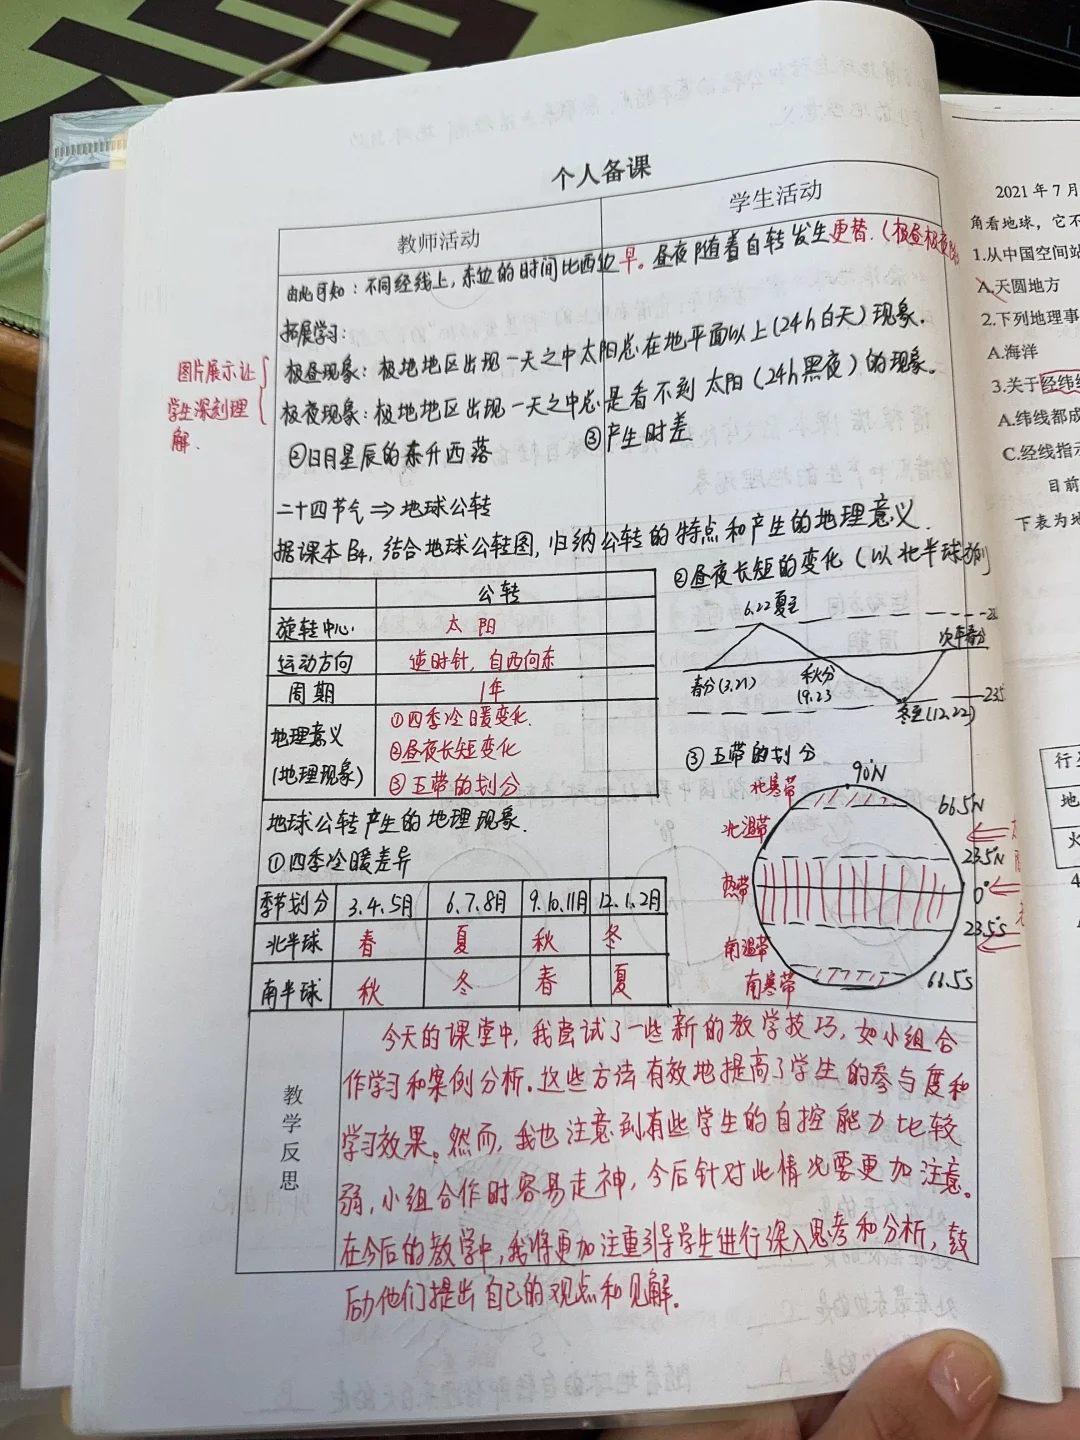 个人备课
教师活动
学生活动
由此可知：不同经线上，东边的时间比西边早。昼夜随着自转发生更替.（极昼极夜
拓展学习：
极昼现象：极地地区出现一天之中太阳总在地平面以上（24h白天）现象.
极夜现象：极地地区出现一天之中总是看不到太阳（24h黑夜）的现象。
图片展示让
学生深刻理
解.
②日月星辰的东升西落
③产生时差
二十四节气⇒地球公转
据课本 结合地球公转图，归纳公转的特点和产生的地理意义.
公转
旋转中心 太阳
运动方向 逆时针，自西向东
周期 1年
地理意义
(地理现象)
①四季冷暖变化.
②昼夜长短变化
③五带的划分
地球公转产生的地理现象.
①四季冷暖差异
季节划分 3.4.5月 6.7.8月 9.10.11月 12.1.2月
北半球 春 夏 秋 冬
南半球 秋 冬 春 夏
②昼夜长短的变化（以北半球为例
6.22夏至
次年春分
春分(3.21)
秋分
冬至(12.22)
③五带的划分
90°N
北寒带
66.5°N
北温带
23.5°N
热带
0°
23.5°S
南温带
南寒带
66.5°S
教学反思
今天的课堂中，我尝试了一些新的教学技巧，如小组合
作学习和案例分析。这些方法有效地提高了学生的参与度和
学习效果。然而，我也注意到有些学生的自控能力比较
弱，小组合作时容易走神，今后针对此情况要更加注意。
在今后的教学中，我将更加注重引导学生进行深入思考和分析，鼓
励他们提出自己的观点和见解。
2021年7月
角看地球，它不
1.从中国空间站
A.天圆地方
2.下列地理事
A.海洋
3.关于经纬
A.纬线都成
C.经线指示
目前
下表为地
行星
地
火